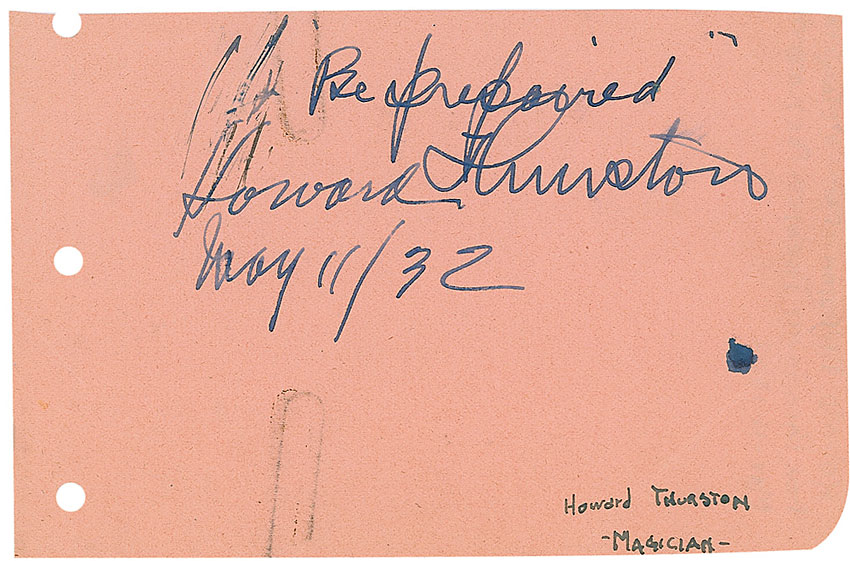 "Be prepaired"
Howard Thurston
May 11/32
Howard THURSTON
-MAGICIAN-